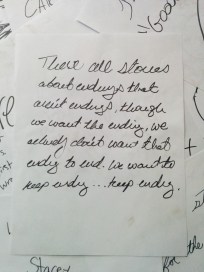 CAR
Good
These all stories
about endings that
aren't endings, though
we want the ending, we
actually don't want that
endig to end. We want to
keep endig... keep endig.
+
for the
Stacey